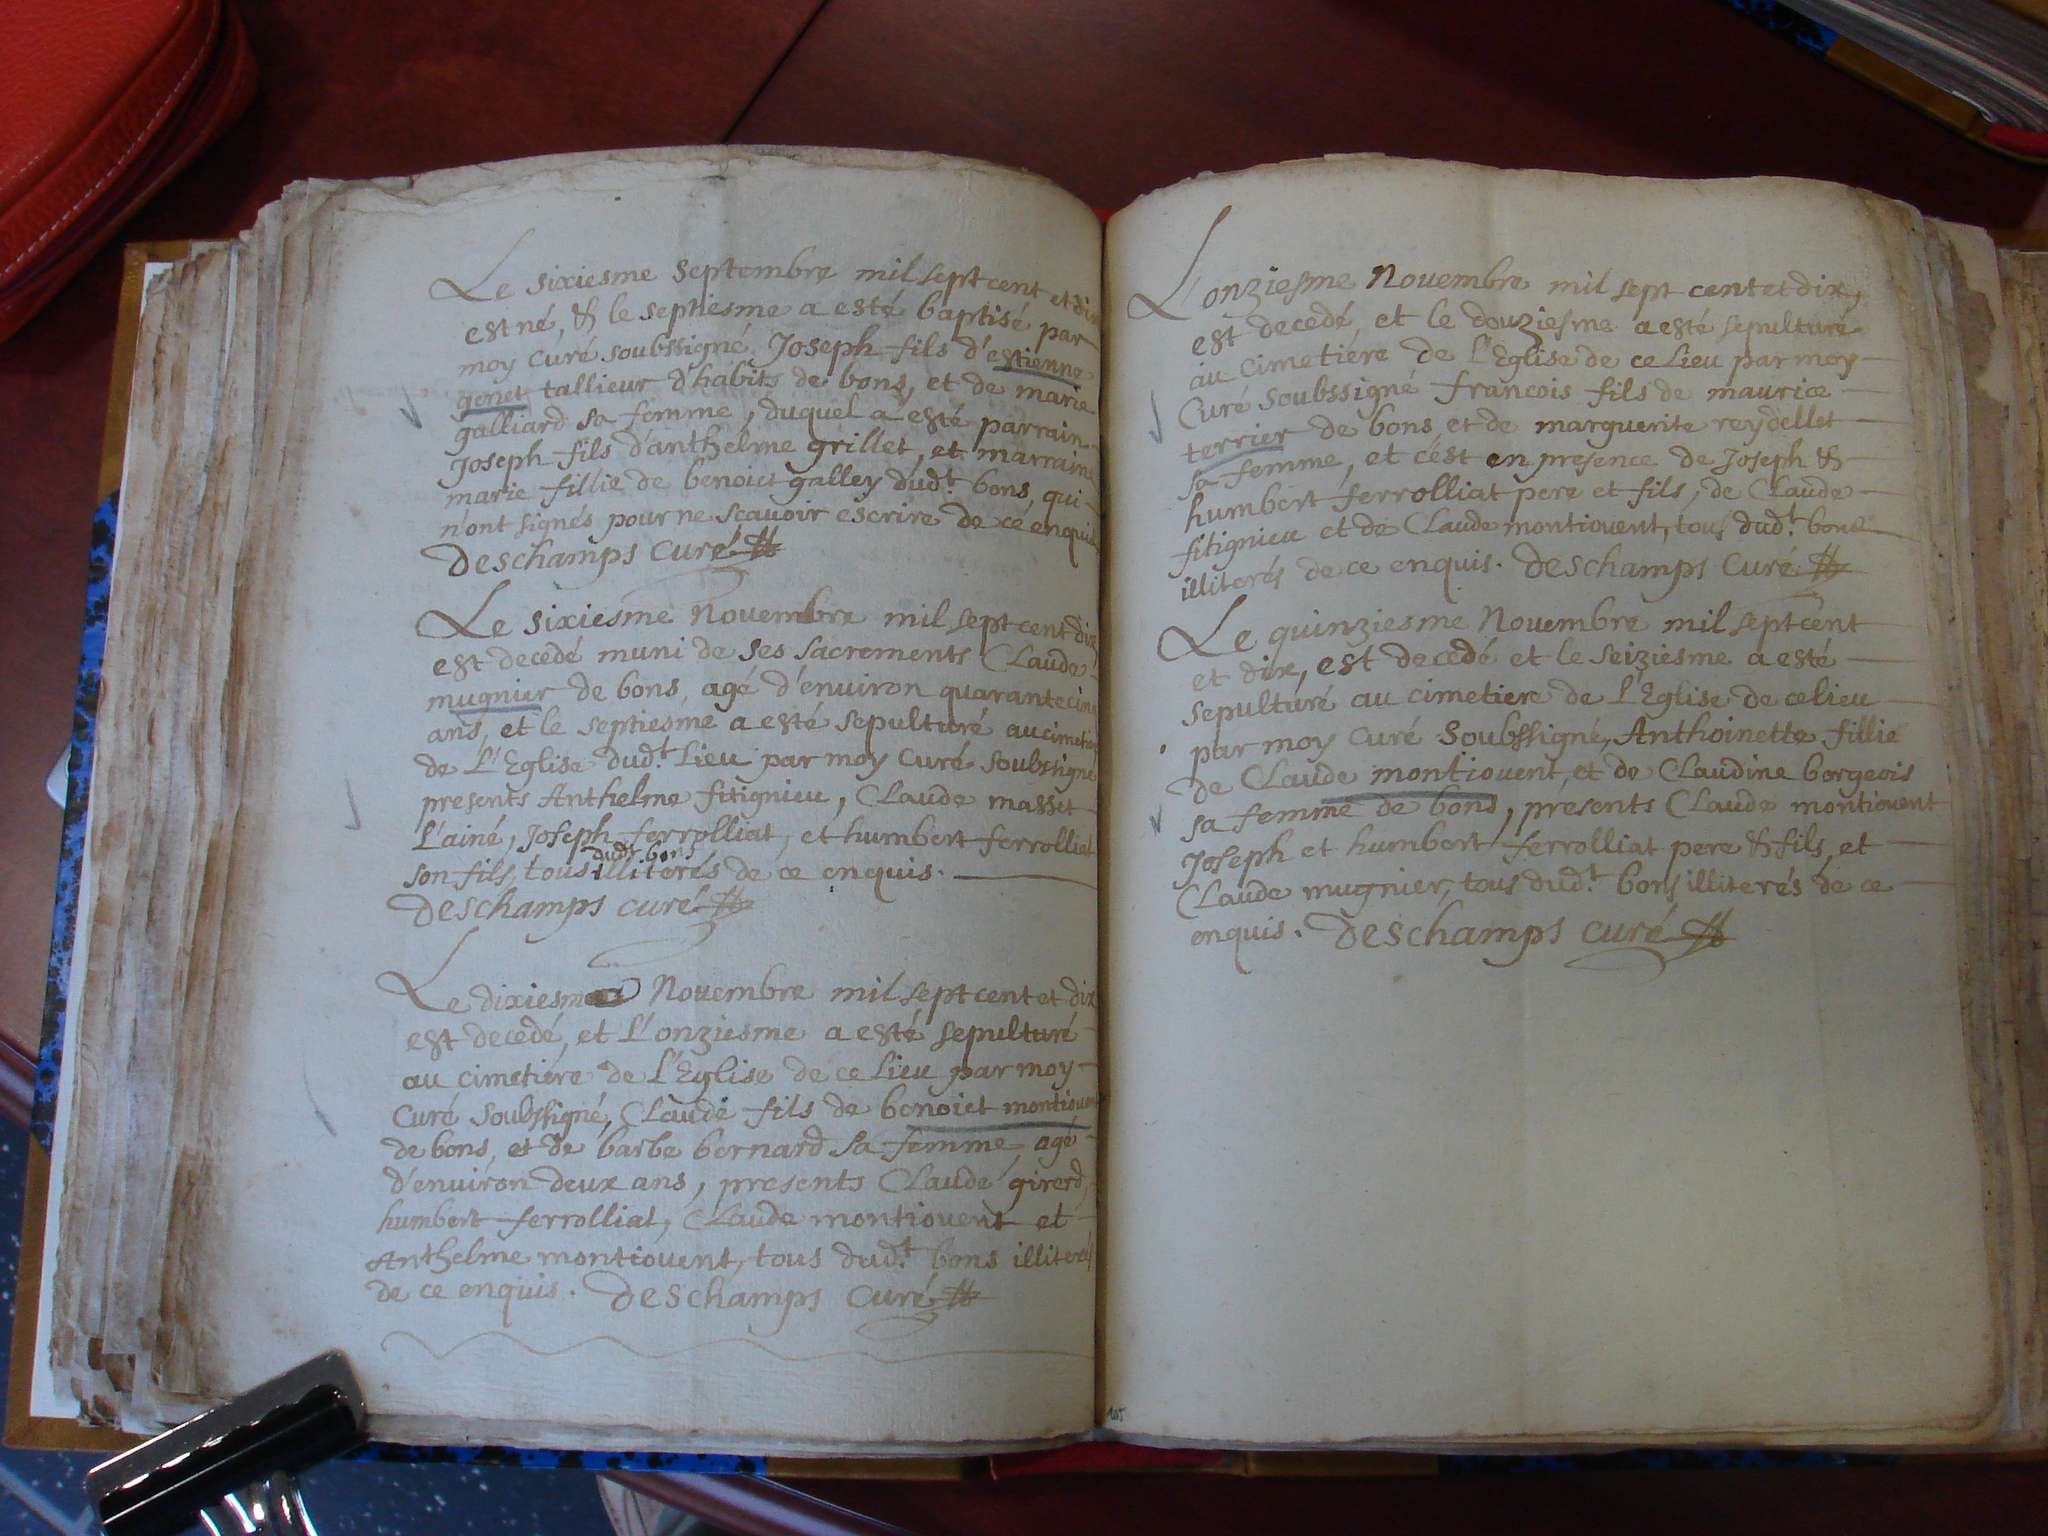 Le sixiesme Septembre mil sept cent et dix
est né, & le septiesme a esté baptisé par
moy Curé soubssigné, Joseph fils d'estienne
genet tallieur d'habits de bons, et de marie
galliard sa femme, duquel a esté parrain
Joseph fils d'anthelme grillet, et marraine
marie fillie de benoict galley dud.t bons, qui
n'ont signés pour ne scavoir escrire de ce enquis
Deschamps Curé
Le sixiesme Novembre mil sept cent dix
est decedé muni de ses sacrements Claude
mugnier de bons, agé d'environ quarante cinq
ans, et le septiesme a esté sepulturé au cimetiere
de L'Eglise dud.t Lieu par moy Curé soubssigné
presents Anthelme fitignieu, Claude masset
L'ainé, Joseph ferrolliat, et humbert ferrolliat
dud.t bons
son fils, tous illiterés de ce enquis.
Deschamps curé
Le dixiesme Novembre mil sept cent et dix
est decedé, et L'onziesme a esté sepulturé
au cimetiere de L'Eglise de ce Lieu par moy
Curé Soubssigné, Claude fils de benoict montiouent
de bons, et de barbe bernard sa femme, agé
d'environ deux ans, presents Claude girerd,
humbert ferrolliat, Claude montiouent et
Anthelme montiouent, tous dud.t bons illiterés
de ce enquis. Deschamps Curé
L'onziesme Novembre mil sept cent et dix,
est decedé, et le douziesme a esté sepulturé
au Cimetiére de L'Eglise de ce Lieu par moy
Curé Soubssigné francois fils de maurice
terrier de bons et de marguerite reydellet
sa femme, et c'est en presence de Joseph &
humbert ferrolliat pere et fils, de Claude
fitignieu et de Claude montiouent, tous dud.t bons
illiterés de ce enquis. Deschamps Curé
Le quinziesme Novembre mil sept cent
et dix, est decedé et le seiziesme a esté
sepulturé au cimetiere de L'Eglise de ce lieu
par moy Curé Soubssigné, Anthoinette fillie
de Claude montiouent, et de Claudine borgeois
sa femme de bons, presents Claude montiouent
Joseph et humbert ferrolliat pere & fils, et
Claude mugnier, tous dud.t bons illiterés de ce
enquis. Deschamps curé
105